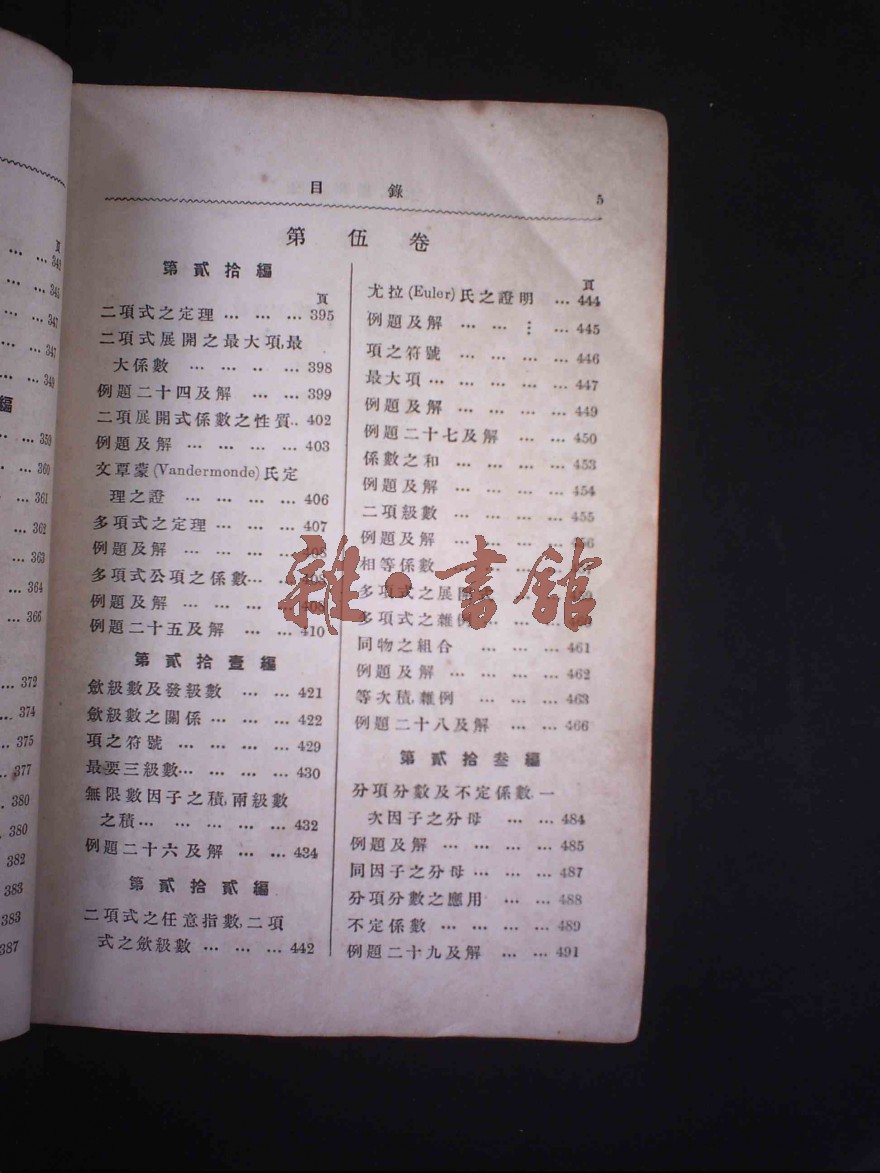 目錄 5
第伍卷
第貳拾編
頁
二項式之定理 … … … 395
二項式展開之最大項,最
大係數 … … … … 398
例題二十四及解 … … 399
二項展開式係數之性質.. 402
例題及解 … … … … 403
文覃蒙(Vandermonde)氏定
理之證 … … … … 406
多項式之定理 … … … 407
例題及解 … … … … 408
多項式公項之係數… …
例題及解 … … … …
例題二十五及解 … … 410
第貳拾壹編
歛級數及發級數 … … 421
歛級數之關係 … … … 422
項之符號 … … … … 429
最要三級數… … … … 430
無限數因子之積,兩級數
之積… … … … … 432
例題二十六及解 … … 434
第貳拾貳編
二項式之任意指數,二項
式之歛級數 … … … 442
頁
尤拉(Euler)氏之證明 … 444
例題及解 … … … … 445
項之符號 … … … … 446
最大項… … … … … 447
例題及解 … … … … 449
例題二十七及解 … … 450
係數之和 … … … … 453
例題及解 … … … … 454
二項級數 … … … … 455
例題及解 … … … … 456
相等係數 … … …
多項式之展開
多項式之雜例…
同物之組合 … … … 461
例題及解 … … … … 462
等次積,雜例 … … … 463
例題二十八及解 … … 466
第貳拾叁編
分項分數及不定係數,一
次因子之分母 … … 484
例題及解 … … … … 485
同因子之分母… … … 487
分項分數之應用 … … 488
不定係數 … … … … 489
例題二十九及解 … … 491
頁
342
345
347
347
349
編
359
360
361
362
363
364
366
372
374
375
377
380
380
382
383
383
387
雜·書館